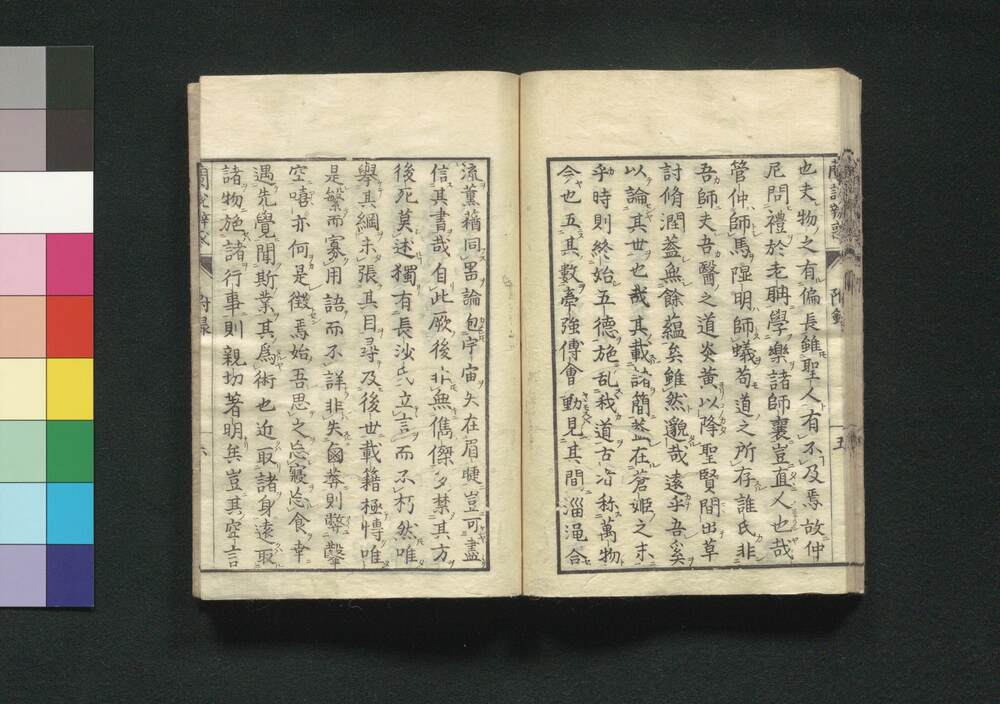 蘭説弁惑 附録 五
也夫物之有偏長雖聖人有不及焉故仲
尼問禮於老聃學樂諸師襄豈直人也哉
管仲師馬隰明師蟻苟道之所存誰氏非
吾師夫吾醫之道炎黄以降聖賢間出草
討脩潤蓋無餘蘊矣雖然邈哉遠乎吾奚
以論其世也哉其載諸簡筞在蒼姫之末
乎時則終始五德施乱我道古今稱萬物
今也五其數牽強傅會動見其間淄澠合
流薫蕕同噐論包宇宙失在眉睫豈可盡
信其書哉自此厥後非無儁傑多禁其方
後死莫述獨有長沙氏立言而不朽然唯
擧其綱未張其目尋及後世載籍極慱唯
是繁而寡用語而不詳非失鹵莽則弊鑿
空嘻亦何是徴焉始吾思之忘寝忘食幸
遇先覺聞斯業其爲術也近取諸身遠取
諸物施諸行事則親切著明矣豈其空言
附録 六